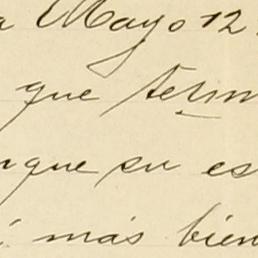 a Mayo 12
que term
que su es
más bien